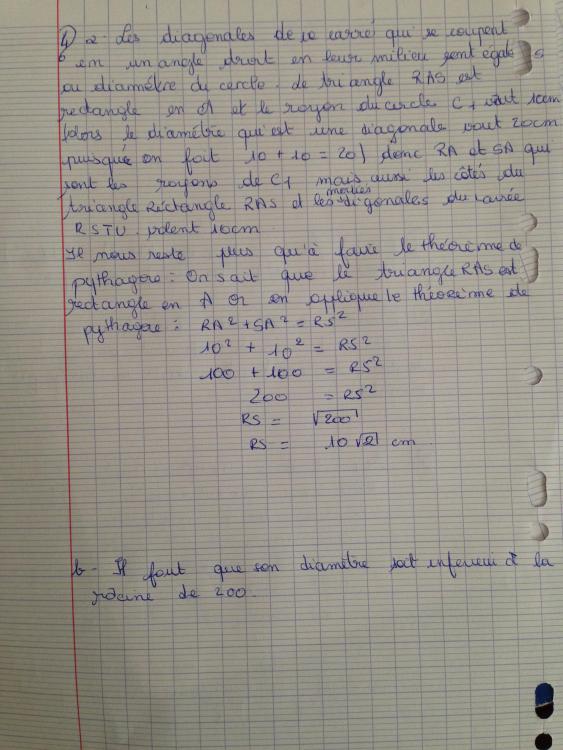 4) a - Les diagonales de ce carré qui se coupent
en un angle droit en leur milieu sont égales
au diamètre du cercle. de triangle RAS est
rectangle en A et le rayon du cercle C1 vaut 10cm
(alors le diamètre qui est une diagonale vaut 20cm
puisque on fait 10 + 10 = 20) donc RA et SA qui
sont les rayons de C1 mais aussi les côtés du
triangle Réctangle RAS et les moitiés digonales du carée
RSTU valent 10cm
Il nous reste plus qu'à faire le théorème de
pythagore : On sait que le triangle RAS est
rectangle en A Or on applique le théorème de
pythagore : RA² + SA² = RS²
10² + 10² = RS²
100 + 100 = RS²
200 = RS²
RS = √200
RS = 10√2 cm
b - Il faut que son diamètre soit inférieur à la
racine de 200.